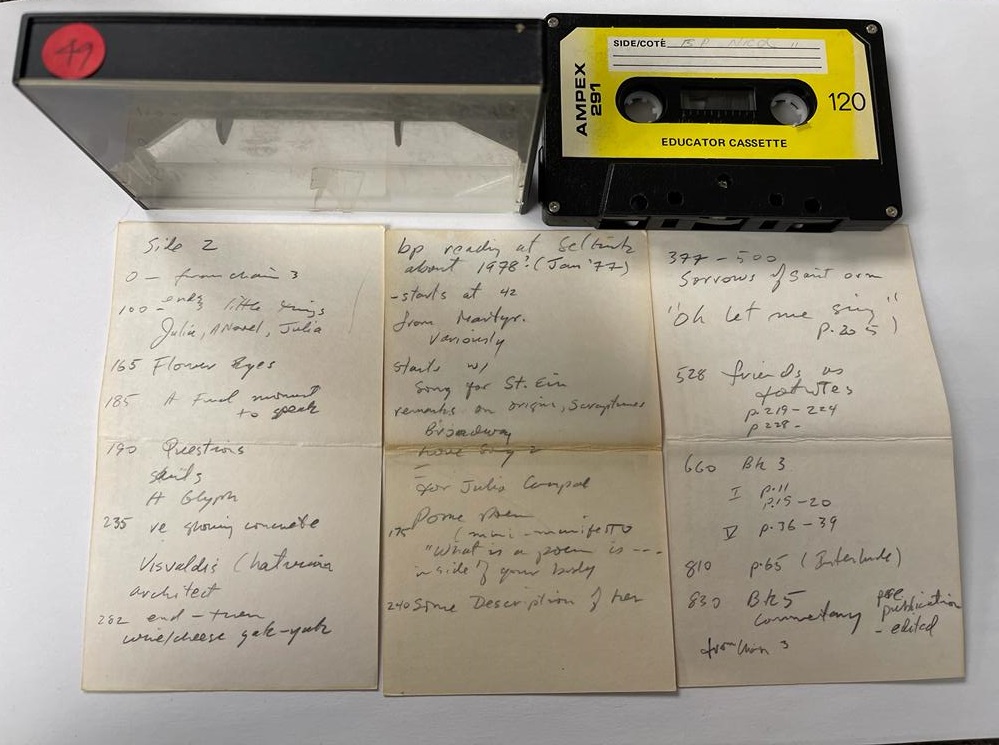 49
SIDE/COTÉ BP NICOL
AMPEX
291
120
EDUCATOR CASSETTE
Side 2
0 - from chain 3
100 - ends little things
Julia, A Novel, Julia
165 Flower Eyes
185 A Final moment
to speak
190 Questions
saints
A Glyph
235 re showing concrete
Visvaldis (
architect
282 end - then
wine/cheese gak-yak
bp reading at
about 1978? (Jan '77)
- starts at 42
from Martyr.
Variously
starts w/
Song for St. Ein
remarks on origin, Scraptures
Broadway
Love Song 2
for Julia
Pome Poem
175 (mini-manifesto
"What is a poem is ---
inside of your body
240 Some Description of her
377 - 500
Sorrows of Saint orm
"Oh let me sing"
p. 205)
528 friends as
footnotes
p. 219-224
p 228-
660 Bk 3
I p. 11
p. 19-20
V p. 36-39
810 p. 65 (Interlude)
830 Bk 5
Commentary pre
publication
- edited
from chain 3